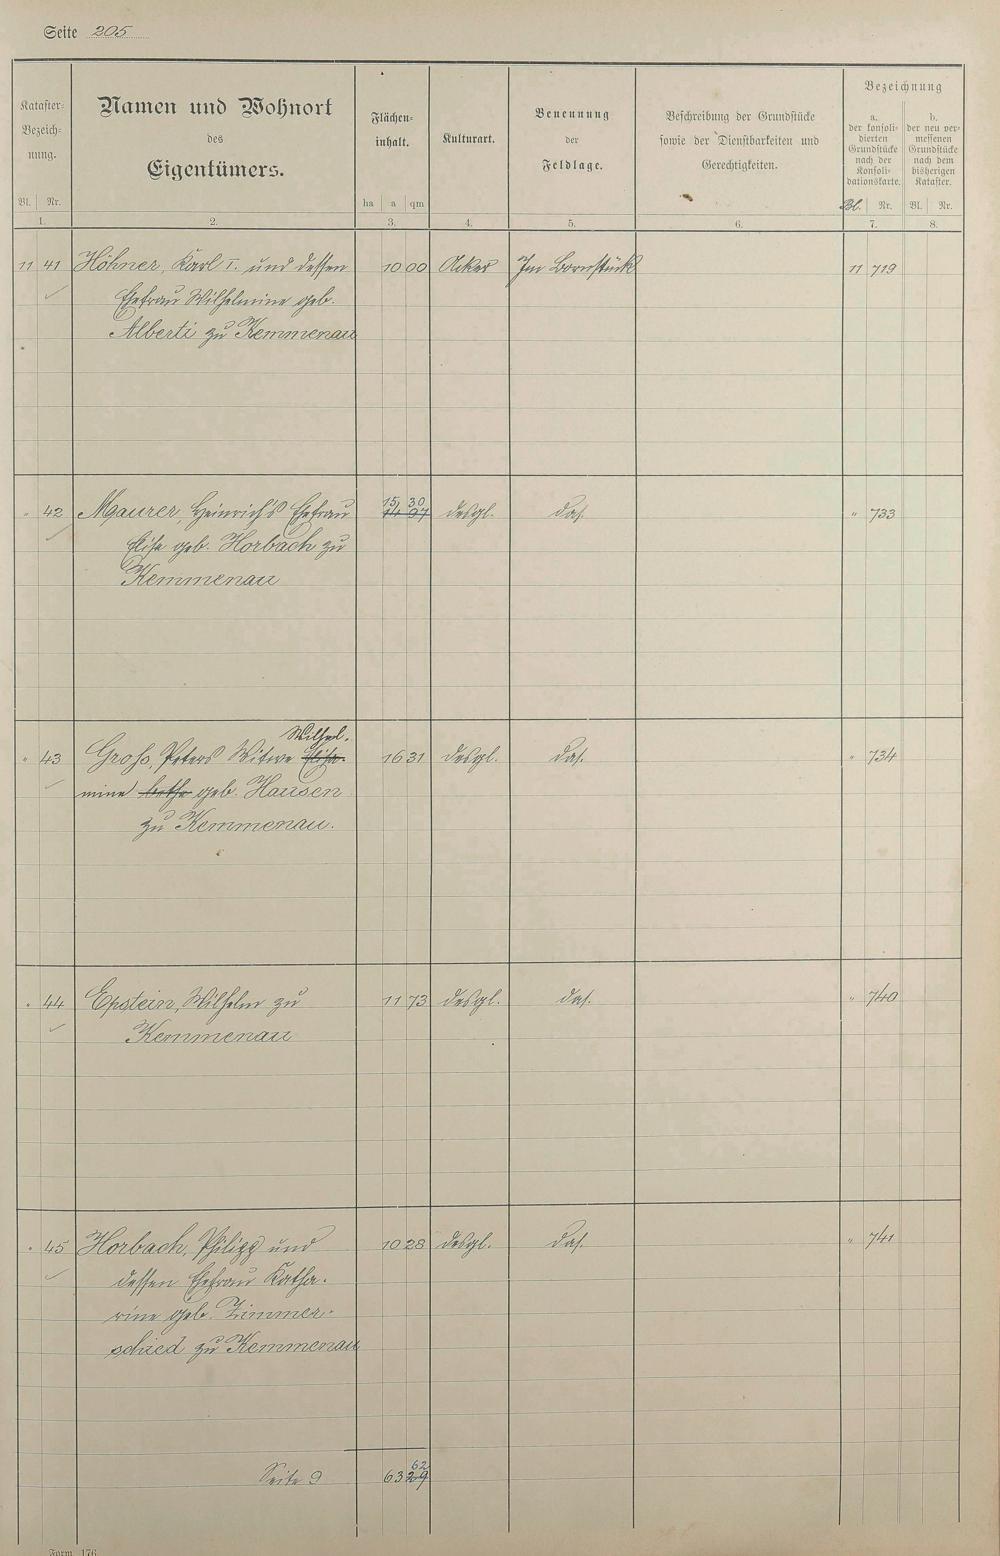 Seite 205
Kataster-
Bezeich-
nung.
Bl. Nr.
1.
Namen und Wohnort
des
Eigentümers.
2.
Flächen-
inhalt.
ha a qm
3.
Kulturart.
4.
Benennung
der
Feldlage.
5.
Beschreibung der Grundstücke
sowie der Dienstbarkeiten und
Gerechtigkeiten.
6.
Bezeichnung
a.
der konsoli-
dierten
Grundstücke
nach der
Konsoli-
dationskarte.
Bl. Nr.
7.
b.
der neu ver-
messenen
Grundstücke
nach dem
bisherigen
Kataster.
Bl. Nr.
8.
11 41 Höhner, Karl I. und dessen 10 00 Acker Im Bornstück 11 719
Ehefrau Wilhelmine geb.
Alberti zu Kemmenau
15 30
" 42 Maurer, Heinrich's Ehefrau 14 97 desgl. das. " 733
Elise geb. Horbach zu
Kemmenau
Wilhel-
" 43 Groß, Peters Witwe Elisa- 16 31 desgl. das. " 734
mine bethe geb. Hausen
zu Kemmenau.
" 44 Epstein, Wilhelm zu 11 73 desgl. das. " 740
Kemmenau
" 45 Horbach, Philipp und 10 28 desgl. das. " 741
dessen Ehefrau Katha-
rine geb. Zimmer-
schied zu Kemmenau
62
Seite 9 63 29
Form. 176